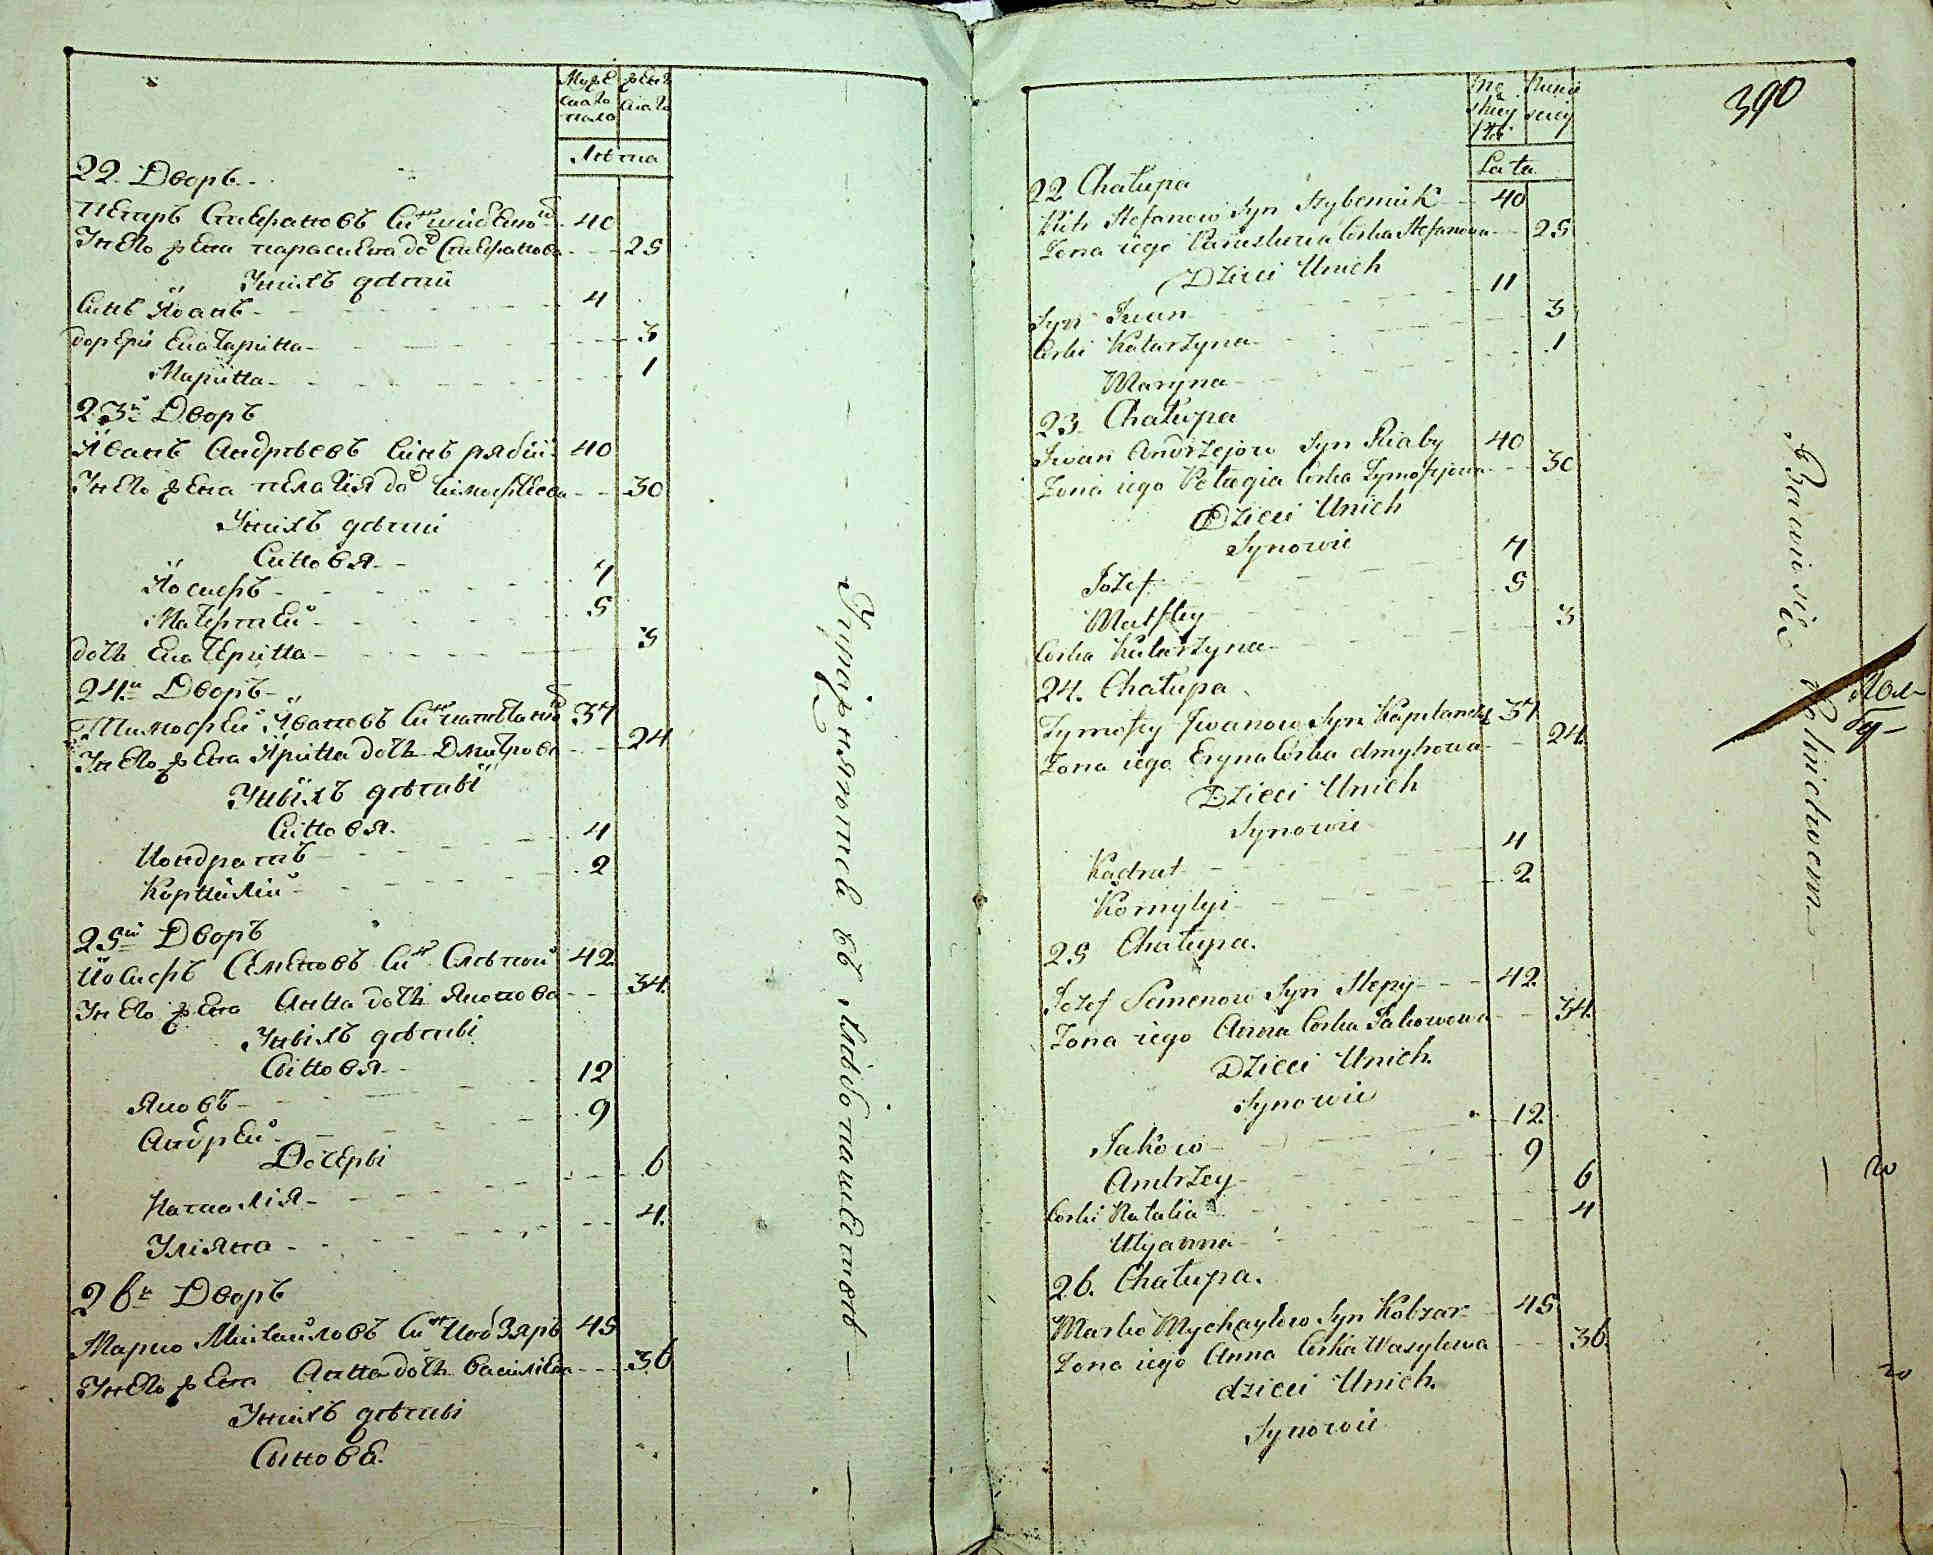 Мужескаго пола
женскаго
Лѣта
22. Дворъ
Петръ Стефановъ Синъ 40
Унего жена Параскева доч Стефанова 25
Унихъ дѣти
Синъ Йванъ 4
Дочери Екатерина 3
Марiина 1
23й Дворъ
Йванъ Андрѣевъ Синъ рябiй 40
Унего жена Пелагiя доч Тимофѣева 30
Унихъ дѣти
Синовя
Йосифъ 7
Матфтей 5
дочь Екатерина 3
24й Дворъ
Тимофей Йвановъ Син 37
Унего жена Ярина дочь Дмитрова 24
Унихъ дѣти
Синовя
Кондратъ 4
Корнилiй 2
25й Дворъ
Йосифъ Семеновъ Син Слѣпой 42
Унего жена Анна дочь Якопова 34
Унихъ дѣти
Синовя
Яковъ 12
Андрей 9
Дочерi
Наталiя 6
Улiяна 4
26й Дворъ
Марко Михайловъ Син Кобзаръ 45
Унего жена Анна дочь Василiева 36
Унихъ дѣти
Синове
Упражняются въ хлѣбопашествѣ
390
Męskiey
Lata
22 Chałupa
Piotr Stefanow Syn 40
Żona iego Paraskewia Corka Stefanowa 25
Dzieci Unich
Syn Iwan 11
Corki Katarżyna 3
Maryna 1
23 Chałupa
Iwan Andrżejow Syn Riaby 40
Żona iego Pełagia Corka Tymofiejowa 30
Dzieci Unich
Synowie
Jożef 7
Matftey 5
Corka Katarżyna 3
24. Chałupa
Tymofiey Iwanow Syn Kapitansky 37
Żona iego Eryna Corka dmytrowa 24
Dzieci Unich
Synowie
Kądrat 4
Kornylyi 2
25 Chałupa.
Jożef Semenow Syn Slepy 42
Żona iego Anna Corka Jakowowa 34
Dzieci Unich
Synowie
Jakow 12
Andrżey 9
Corki Natalia 6
Ulyanna 4
26. Chałupa.
Marko Mychayłow Syn Kobzar 45
Żona iego Anna Corka Wasylewa 36
dzieci Unich
Synowie
Bawi się Rolnictwem